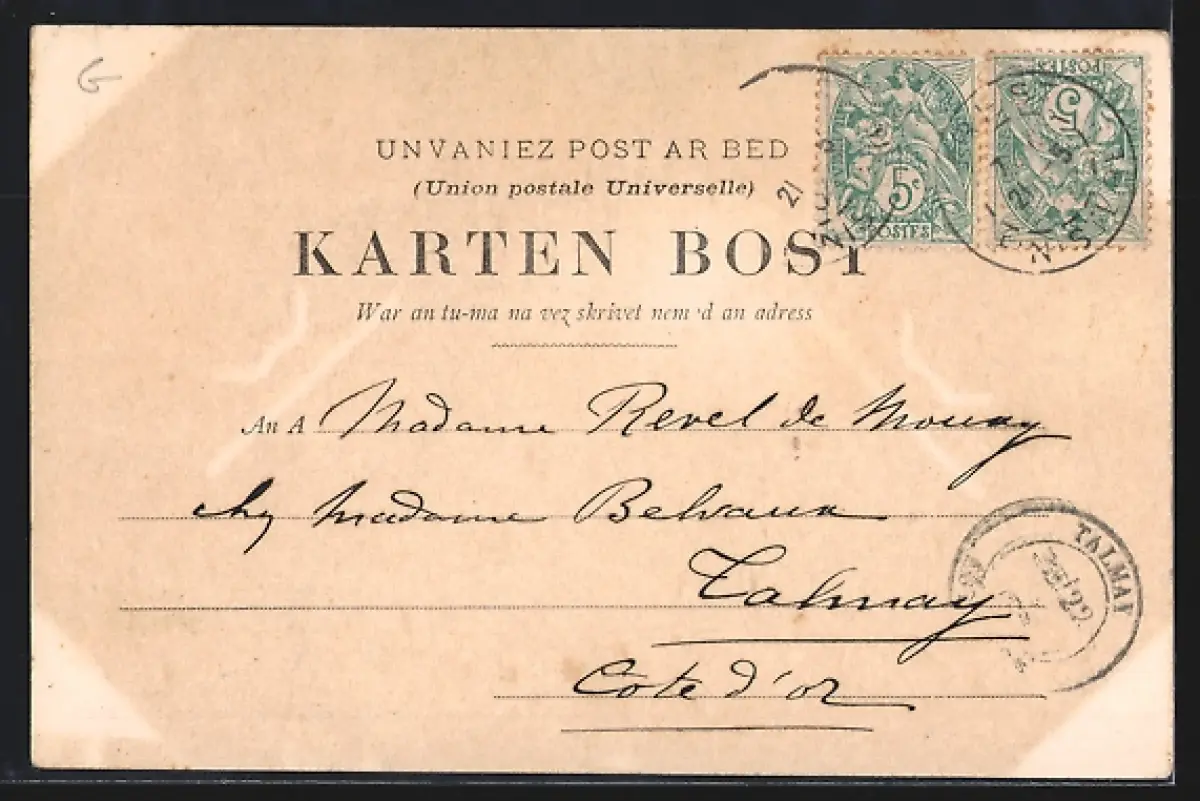 UNVANIEZ POST AR BED
(Union postale Universelle)
KARTEN BOST
War an tu-ma na vez skrivet nem'd an adress
An A Madame Revel de Mouxy
chez Madame Belvaux
Talmay
Côte d'or
5c
POSTES
5
POSTES
21
21
TALMAY
22